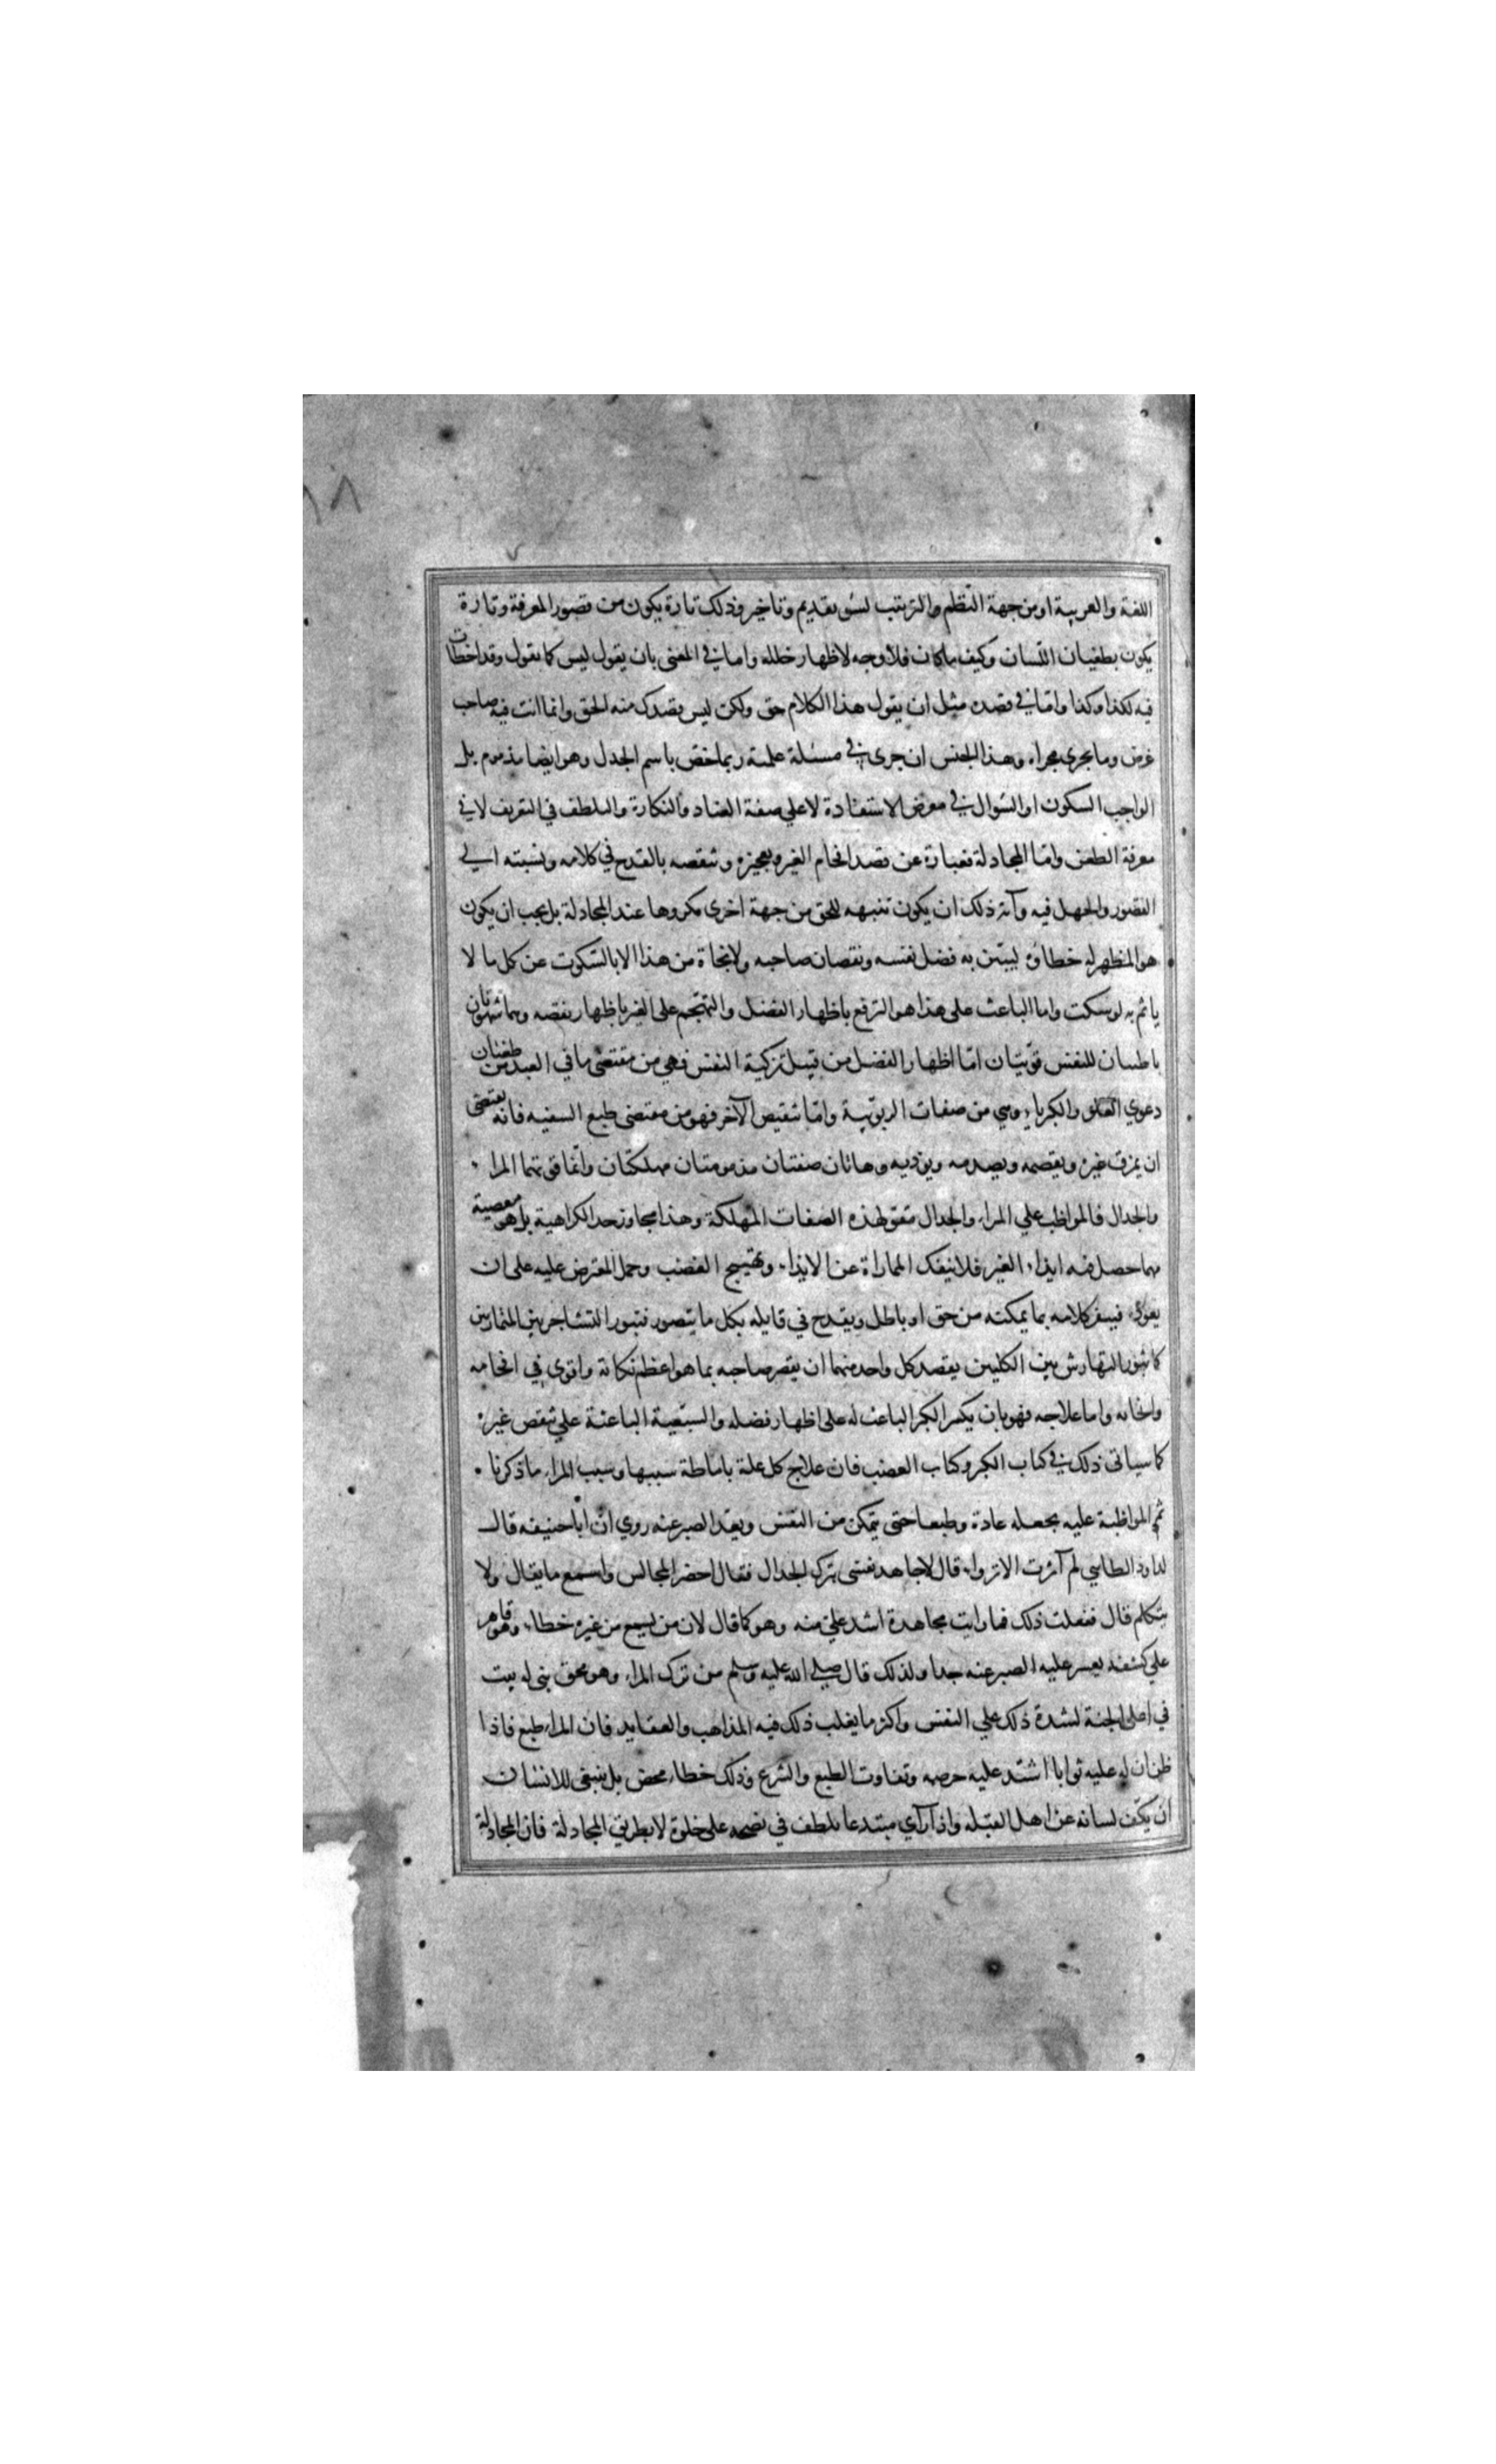 اللغة والعربية او من جهة النظم والترتيب لسوء تقديم وتاخير وذلك تارة يكون من قصور المعرفة وتارة
يكون بطغيان اللسان وكيف ما كان فلا وجه لاظهار خلله واما في المعنى بان يقول ليس كما تقول وقد اخطات
فيه لكذا وكذا واما في قصده مثل ان يقول هذا الكلام حق ولكن ليس قصدك منه الحق وانما انت فيه صاحب
غرض وما يجري مجراه وهذا الجنس ان جرى في مسئلة علمية ربما خص باسم الجدل وهو ايضا مذموم بل
الواجب السكوت او السؤال في معرض الاستفادة لا على صفة العناد والنكارة والتلطف في التعريف لا في
معرفة الطعن واما المجادلة فعبارة عن قصد افحام الغير وتعجيزه وتنقصه بالقدح في كلامه ونسبته الى
القصور والجهل فيه وآية ذلك ان يكون تنبيهه للحق من جهة اخرى مكروها عند المجادلة بل يجب ان يكون
هو المظهر له خطاؤه ليبين به فضل نفسه ونقصان صاحبه ولا نجاة من هذا الا بالسكوت عن كل ما لا
ياثم به لو سكت واما الباعث على هذا هو الترفع باظهار الفضل والتهجم على الغير باظهار نقصه وهما شهوتان
باطنتان للنفس قويتان اما اظهار الفضل من قبيل تزكية النفس فهي من مقتضى ما في العبد من طغيان
دعوي العلو والكبرياء وهي من صفات الربوبية واما تنقيص الآخر فهو من مقتضى طبع السفيه فانه يقتضي
ان يمزق غيره ويقصمه ويصدمه ويوذيه وهاتان صفتان مذمومتان مهلكتان وانما قوتهما المراء
والجدال فالمواظب على المراء والجدال مقو لهذه الصفات المهلكة وهذا مجاوز حد الكراهية بل هو معصية
مهما حصل فيه ايذاء الغير فلا ينفك المماراة عن الايذاء وتهييج الغضب وحمل المعترض عليه على ان
يعود فينصر كلامه بما يمكنه من حق او باطل ويقدح في قايله بكل ما يتصور فيثور التشاجر بين المتمارين
كما يثور التهارش بين الكلبين يقصد كل واحد منهما ان يقصر صاحبه بما هو اعظم نكاية واقوى في افحامه
والجامه واما علاجه فهو بان يكسر الكبر الباعث له على اظهار فضله والسبعية الباعثة على تنقص غيره
كما سياتى ذلك في كتاب الكبر وكتاب الغضب فان علاج كل علة باماطة سببها وسبب المراء ما ذكرنا
ثم المواظبة عليه يجعله عادة وطبعا حتى يتمكن من النفس ويعز الصبر عنه روي ان ابا حنيفه قال
لداود الطايي لم آثرت الانزواء قال لاجاهد نفسى بترك الجدال فقال احضر المجالس واسمع ما يقال ولا
يتكلم قال ففعلت ذلك فما رايت مجاهدة اشد علي منه وهو كما قال لان من يسمع من غيره خطاء وهو قاهر
على كشفه يعسر عليه الصبر عنه جدا ولذلك قال صلى الله عليه وسلم من ترك المراء وهو محق بنى له بيت
في اعلى الجنة لشدة ذلك على النفس واكثر ما يغلب ذلك فيه المذاهب والعقايد فان المراء طبع فاذا
ظن ان له عليه ثوابا اشتد عليه حرصه وتعاون الطبع والشرع وذلك خطاء محض بل ينبغى للانسان
ان يكف لسانه عن اهل القبلة واذا رآي مبتدعا تلطف في نصحه على خلوة لا بطريق المجادلة فان المجادلة